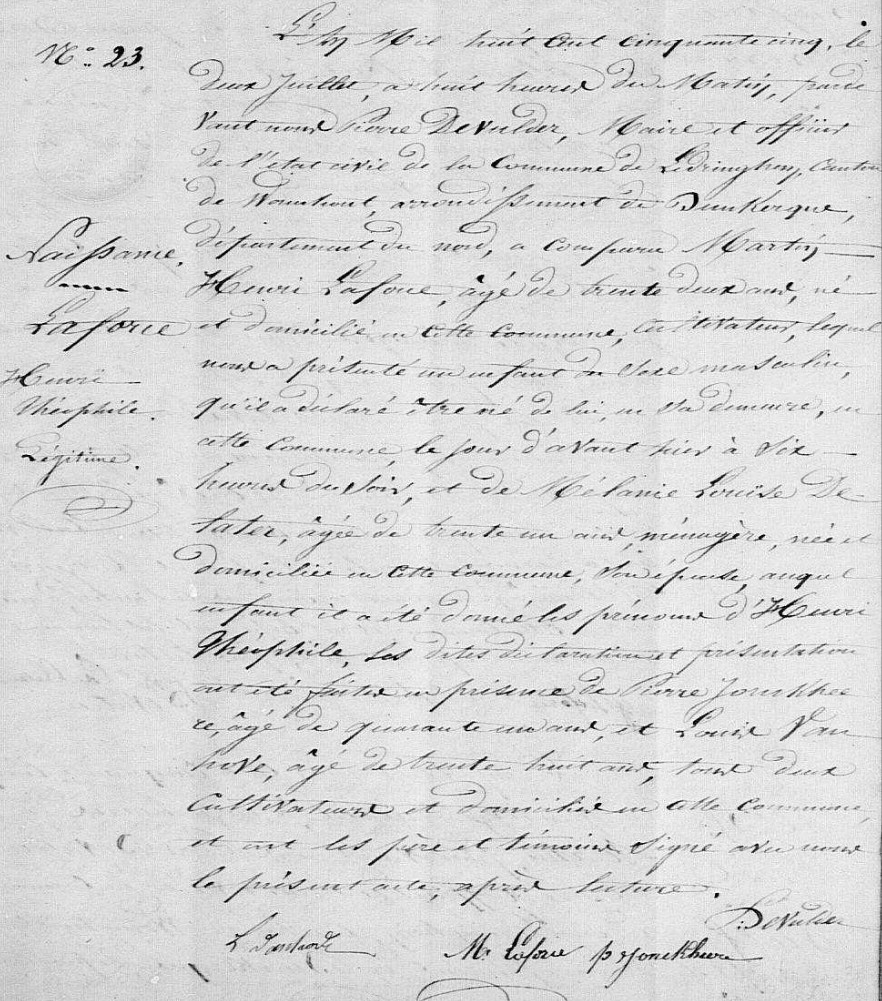 N.° 23.
Naissance.
Laforce
Henri
Théophile.
Légitime.
L'an Mil huit cent cinquante cinq, le
deux Juillet, a huit heures du Matin, parde
vant nous Pierre DeVulder, Maire et officier
de l'état civil de la Commune de Ledringhem, Canton
de Wormhout, arrondissement de Dunkerque,
département du nord, a comparu Martin
Henri Laforce, âgé de trente deux ans, né
et domicilié en cette commune, Cultivateur, lequel
nous a présenté un enfant du Sexe masculin,
qu'il a déclaré être né de lui, en Sa demeure, en
cette commune, le jour d'avant hier à Six
heures du Soir, et de Mélanie Louise De-
tater, âgée de trente un ans, ménagère, née et
domiciliée en cette commune, Son épouse, auquel
enfant il a été donné les prénoms d'Henri
Théophile, Les dites déclaration et présentation
ont été faites en présence de Pierre Jonckhee
re, âgé de quarante un ans, et Louis Van
hove, âgé de trente huit ans, tous deux
Cultivateurs et domiciliés en cette Commune,
et ont les père et témoins Signé avec nous
le présent acte, après lecture.
P. DeVulder
L Vanhove M. Laforce p Jonckheere